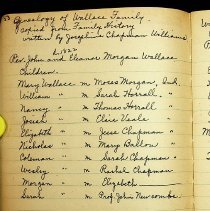 Genealogy of Wallace Family
copied from Family History
written by Josephine Chapman Williams
b. 1822
Rev. John and Eleanor Morgan Wallace
Children.
Mary Wallace m Moses Morgan, Ind.
William " m Sarah Horrall "
Nancy " m Thomas Horrall "
Josiah " m Elsie Veale "
Elizabeth " m Jesse Chapman "
Nicholas " m Mary "
Coleman " m Sarah Chapman "
Wesley " m Rachel Chapman
Morgan " m Elizabeth
Sarah " m Prof. John Newcombe.